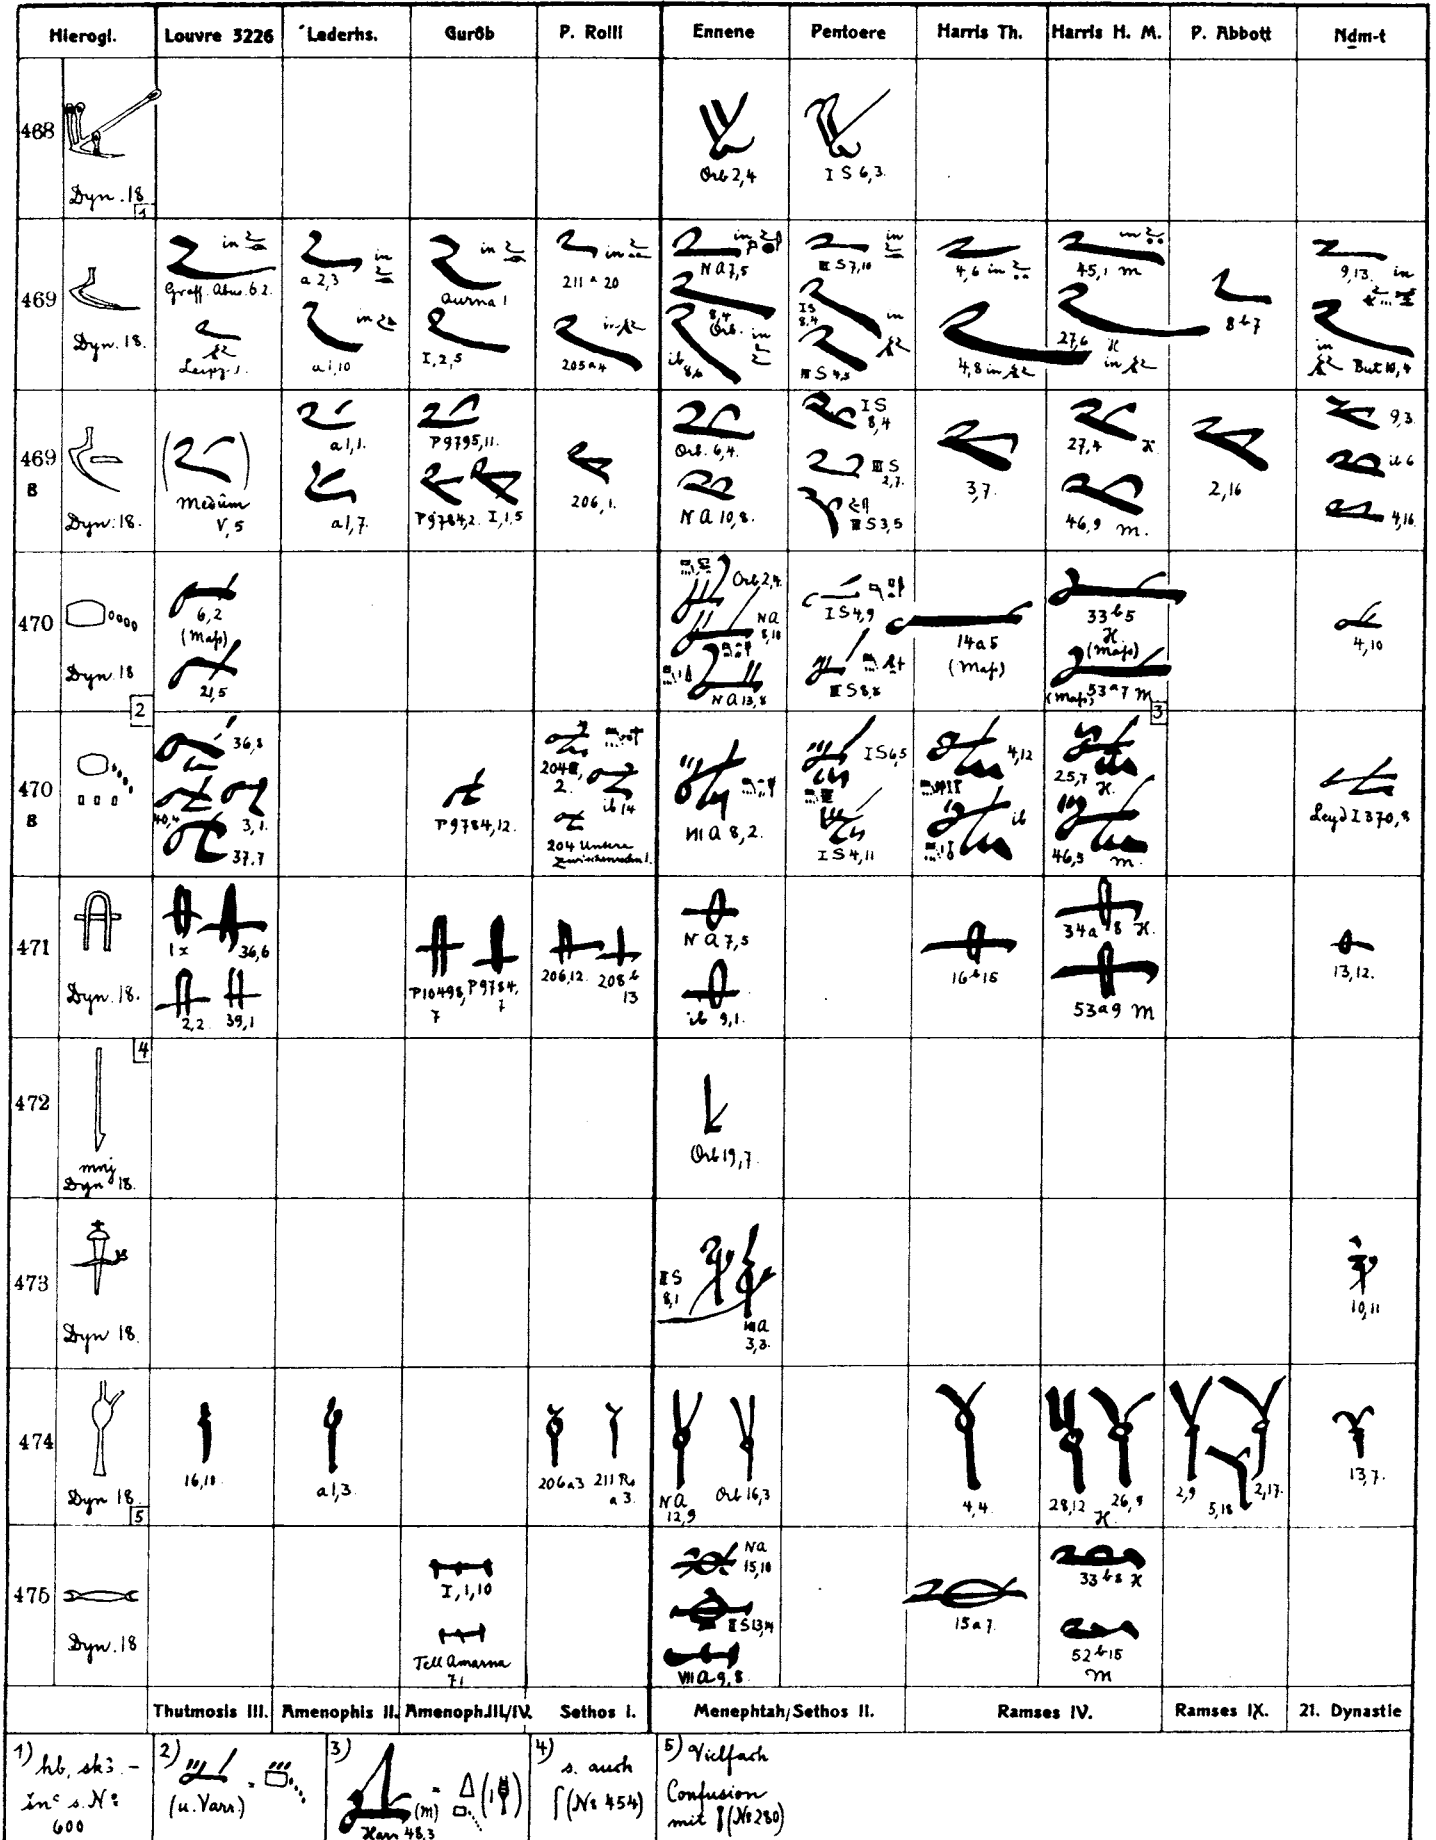 Hierogl. Louvre 3226 Lederhs. Gurôb P. Rolli Ennene Pentoere Harris Th. Harris H. M. P. Abbott Nḏm-t
468 Dyn. 18 1 Orb 2,4 I S 6,3.
469 Dyn. 18. in Graff. Abus. 6 2. a 2,3 in in Qurna 1 211 a 20 in N A 7,5 in III S 7,10 in 4,6 in 45,1 m in 9,13. in
Leipz. 1. a 1,10 in I, 2,5 205 a 4 in 8,4 Orb. ib 8,6 in IS 8,4 III S 4,5 in 4,8 in 27,6 H in 8 b 7 in But 10,4
469 B Dyn. 18. Medûm V, 5 a 1, 1. a 1,7. P 9795, 11. P 9784, 2. I, 1, 5 206, 1. Orb. 6, 4. N A 10, 8. I S 8,4 III S 2,7. III S 3,5 3,7. 27,4 H. 46,9 m. 2, 16 9,3. ib 6 4,16.
470 Dyn. 18 2 6,2 (Maß) 21,5 Orb 2,4. N A 8,10 N A 13,8 I S 4,9 III S 8,8 14 a 5 (Maß) 33 b 5 H. (Maß) (Maß) 53 a 7 m 3 4,10
470 B 36,8 40,4 3,1. 37,7 P 9784, 12. 204 2. ib 14 204 Untere Zwischenzeile. VII A 8, 2. I S 6,5 I S 4,11 4,12 ib 25,7 H. 46,5 m. Leyd I 370, 8
471 Dyn. 18. 1 x 36,6 2,2. 39,1 P 10498, 7 P 9784, 7 206,12. 208 b 13 N A 7,5 ib 9,1. 16 b 15 34 a 8 H. 53 a 9 m 13,12.
472 4 mnj Dyn 18. Orb 19,7.
473 Dyn 18. II S 8,1 VII A 3,3. 10,11
474 Dyn 18. 5 16,10. a 1,3. 206 a 3 211 Rs a 3. N A 12,9 Orb 16,3 4,4. 28,12 26,9 H. 2,9 5,18 2,17. 13,7.
475 Dyn. 18 I, 1, 10 Tell Amarna 7, N A 15,10 II S 13,14 VII A 9, 8. 15 a 7. 33 b 8 H 52 b 15 m
Thutmosis III. Amenophis II. Amenoph.III./IV. Sethos I. Menephtah/Sethos II. Ramses IV. Ramses IX. 21. Dynastie
1) hb, sk3. –
šnc s. No
600
2)
(u. Varr.)
3) (m)
Harr 48,3
4) s. auch
(No 454)
5) Vielfach
Confusion
mit (No 280)